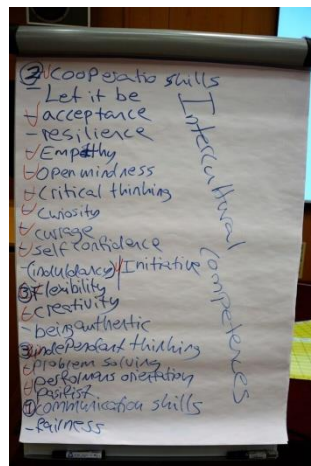 ② cooperatio skills
- Let it be
- acceptance
- resilience
- Empathy
- Openmindness
- Critical thinking
- Curiosity
- curage
- self confidence
- (indulgancy) / Initiative
③ flexibility
- creativity
- being authentic
③ independant thinking
- problem solving
- performans orientation
- pasifist
① communication skills
- fairness
Intercultural Competences